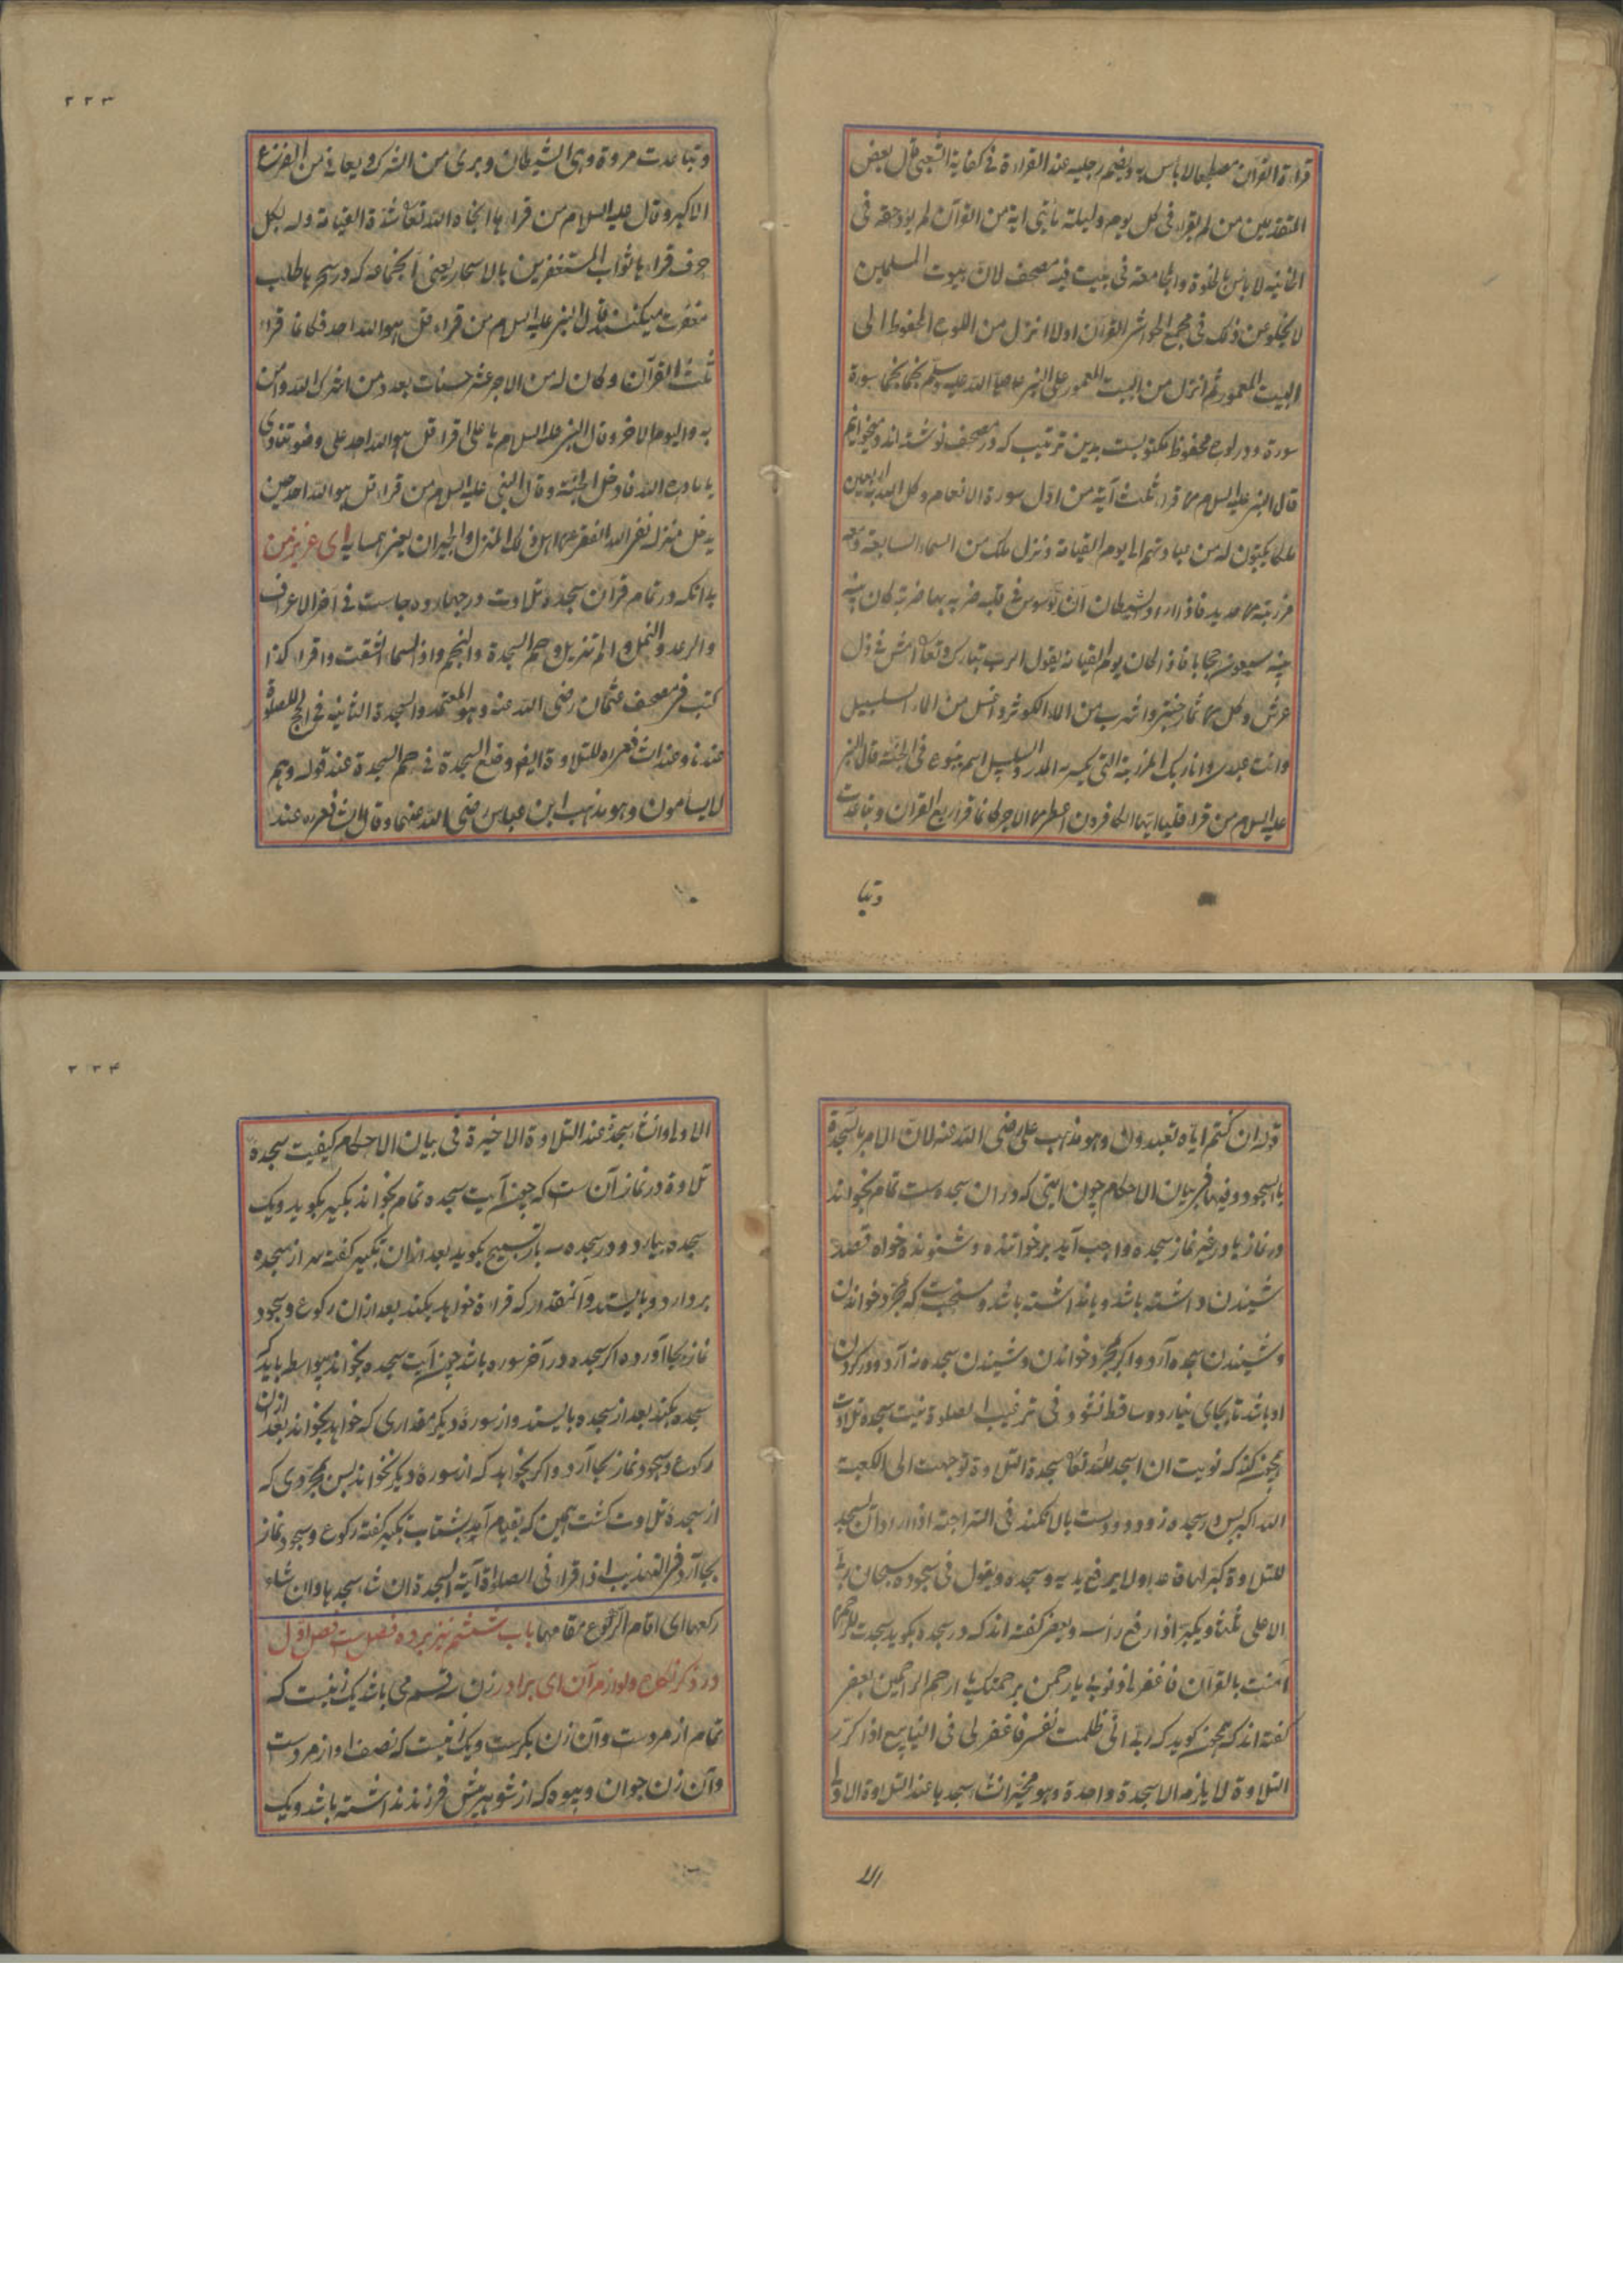 قراءة القرآن مضطجعا لا باس به ويضم رجليه عند القراءة فى كفاية الشعبى قال بعض
المتقدمين من لم يقراء فى كل يوم وليلة مأتى اية من القرآن لم يؤد حقه فى
الخانيه لا باس بالخلوة والمجامعة فى بيت فيه مصحف لان بيوت المسلمين
لا يخلو عن ذلك فى مجمع القرآن اولا انزل من اللوح المحفوظ الى
البيت المعمور ثم انزل من البيت المعمور على النبى صلى الله عليه وسلم نجما نجما سورة
سورة و در لوح محفوظ مكتوبست بدين ترتيب كه در مصحف نوشته اند و ميخوانم
قال النبى عليه السلام من قراء ثلث آية من اول سورة الانعام وكل الله به اربعين
ملكا يكتبون له من عبادتهم الى يوم القيامة ونزل ملك من السماء السابعة ومعه
مرزبة من حديد فاذا اراد الشيطان ان يوسوس فى قلبه ضربه بها ضربة كان بينه
بينه سبعون حجابا فاذا كان يوم القيامة يقول الرب تبارك وتعالى امش فى ظل
عرش وكل من ثمار جنتى واشرب من الماء الكوثر واغسل من الماء السلسبيل
وانت عبدى وانا ربك المرزبة التى يكسر به المدر والسلسبيل اسم ينبوع فى الجنة قال النبى
عليه السلام من قراء قل يا ايها الكافرون اعطى من الاجر كانما قراء ربع القران وتباعدت
وتبا
٢٢٣
وتباعدت مردة وهى الشيطان وبرى من الشرك ويعافى من الفزع
الاكبر وقال عليه السلام من قراءها انجاه الله تعالى شدة القيامة وله بكل
حرف قراءها ثواب المستغفرين بالاسحار يعنى آنجماعه كه در سحرها طلب
مغفرت ميكنند قال النبى عليه السلام من قراء قل هو الله احد فكانما قراء
ثلث القرآن وكان له من الاجر عشر حسنات بعدد من اشرك الله وامن
به واليوم الاخر وقال النبى عليه السلام يا على اقراء قل هو الله احد على وضو تنادى
يا مادح الله فادخل الجنة وقال النبى عليه السلام من قراء قل هو الله احد حين
يدخل منزله نفى الله الفقر من اهل ذلك المنزل والجيران يعنى همسايه اى عزيز من
بدانكه در تمام قرآن سجده تلاوت در چهارده جاست فى اخر الاعراف
والرعد والنمل والم تنزيل وحم السجدة والنجم واذا السماء انشقت واقراء كذا
كتب فى مصحف عثمان رضى الله عنه وهو المعتمد والسجدة الثانيه فى الحج للصلوة
عندنا وعند الشافعى ره للتلاوة ايضا وضع السجدة فى حم السجدة عند قوله وهم
لا يسامون وهو مذهب ابن عباس رضى الله عنهما وقال الشافعى ره عند
قوله ان كنتم اياه تعبدون وهو مذهب على رضى الله عنه لان الامر بالسجدة
يا السجود وفيها فى بيان الاحكام چون ايتى كه دران سجده ست تمام بخواند
در نماز يا در غير نماز سجده واجب آيد بر خواننده و شنونده خواه قصد
شنيدن داشته باشد و يا نداشته باشد و مستحبست كه بمجرد خواندن
و شنيدن سجده آرد و اگر بمجرد خواندن و شنيدن سجده نه آرد و در گردن
او باشد تا بجاى نيارد و ساقط نشود و فى ترغيب الصلوة نيت سجده تلاوت
چنين كند كه نويت ان اسجد لله تعالى سجدة التلاوة توجهت الى الكعبة
الله اكبر پس در سجده رود و دو دست بالا نكند فى السراجية اذا اراد ان يسجد
للتلاوة كبر لها قاعدا ولا يرفع يديه وسجده ويقول فى سجوده سبحان ربى
الاعلى ثلثا ويكبر اذا رفع رأسه و بعضى گفته اند كه در سجده بگويد سجدت للرحمن
آمنت بالقرآن فاغفر لى ذنوبى يا رحمن برحمتك يا ارحم الراحمين بعضى
گفته اند كه چنين گويد كه ربى انى ظلمت نفسى فاغفر لى فى الينابيع اذا كرر
التلاوة لا يلزمه الا سجدة واحدة وهو مخير ان شاء سجدها عند التلاوة الاولى
الا
٢٢٤
الاولى وان شاء سجد عند التلاوة الاخيرة فى بيان الاحكام كيفيت سجده
تلاوة در نماز آن ست كه چون آيت سجده تمام بخواند تكبير بگويد و يك
سجده بيارد و در سجده سه بار تسبيح بگويد بعد ازان تكبير گفته سر از سجده
بردارد و بايستد و آنمقدار كه قراءة خواهد بكند بعد ازان ركوع و سجود
نماز بجا آورد و اگر سجده در آخر سوره باشد چون آيت سجده بخواند بيواسطه بايد كه
سجده بكند بعد از سجده بايستد و از سوره ديگر مقدارى كه خواهد بخواند بعد ازان
ركوع و سجود نماز بجا آرد و اگر نخواهد كه از سوره ديگر بخواند پس بمجردى كه
از سجدۀ تلاوت گشت همين كه بقيام آيد بشتاب تكبير گفته ركوع و سجود نماز
بجا آرد فى التهذيب اذا قراء فى الصلوة آية السجدة ان شاء سجدها وان شاء
ركعها اى اقام الركوع مقامها باب ششم نيز بر ده فصل ست فصل اول
در ذكر نكاح و لوازم آن اى برادر زن سه قسم مى باشد يك زنيست كه
تمام از مردست و آن زن بكرست و يك زنيست كه نصف او از مردست
و آن زن جوان و بيوه كه از شوهر پيش فرزند نداشته باشد و يك